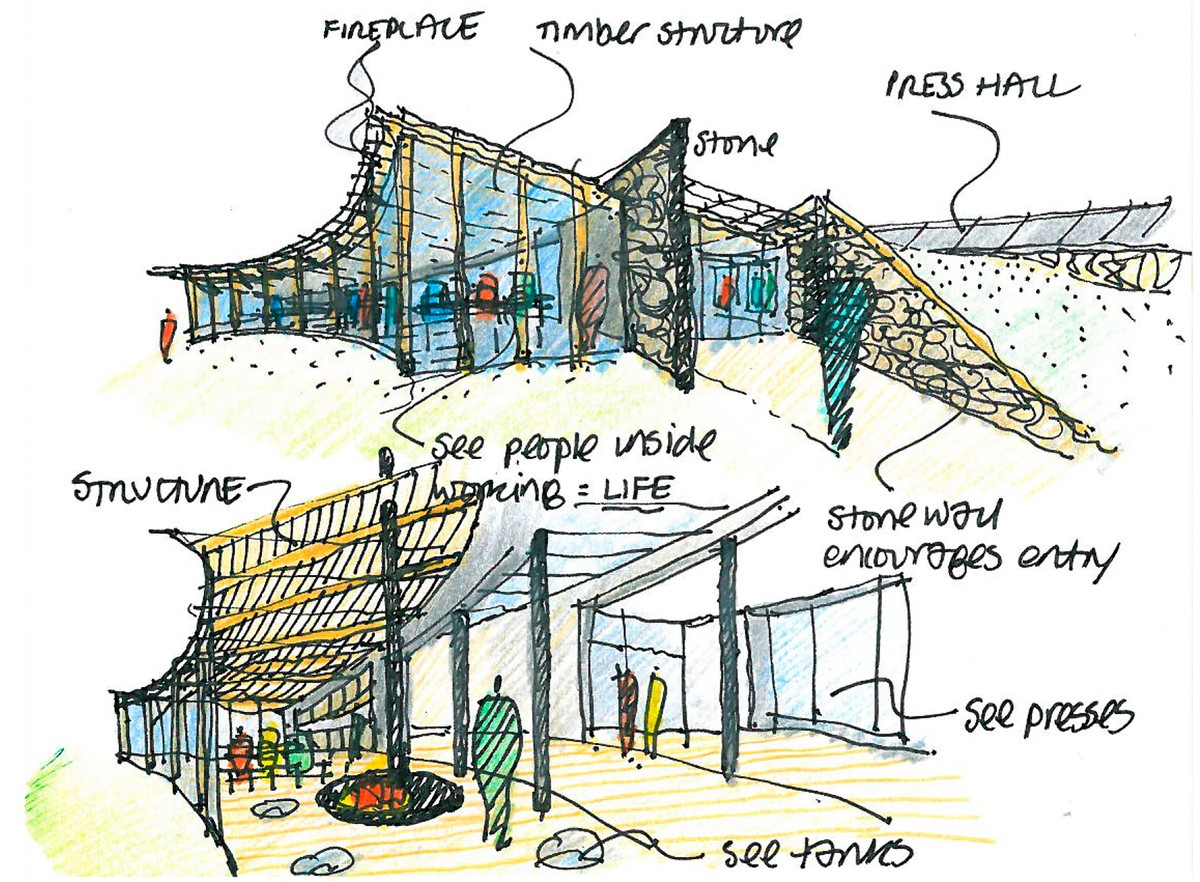 FIREPLACE
Timber structure
PRESS HALL
stone
see people inside
working = LIFE
STRUCTURE
stone wall
encourages entry
see presses
see tanks